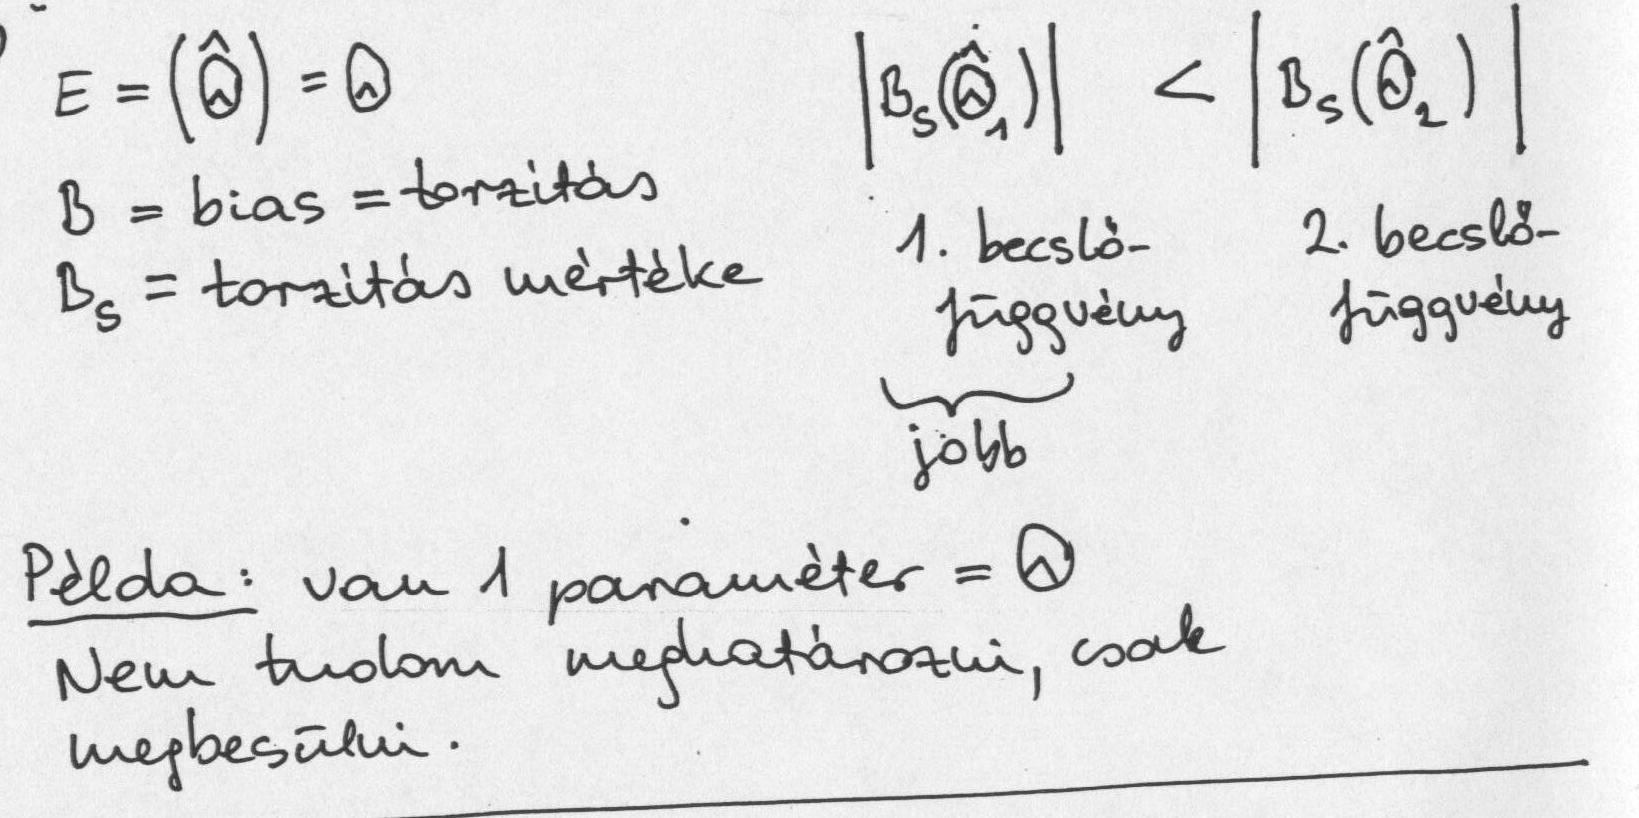 E = (Θ̂) = Θ
B = bias = torzítás
Bs = torzítás mértéke
|Bs(Θ̂1)| < |Bs(Θ̂2)|
1. becslő-
függvény
2. becslő-
függvény
jobb
Példa: van 1 paraméter = Θ
Nem tudom meghatározni, csak
megbesülni.